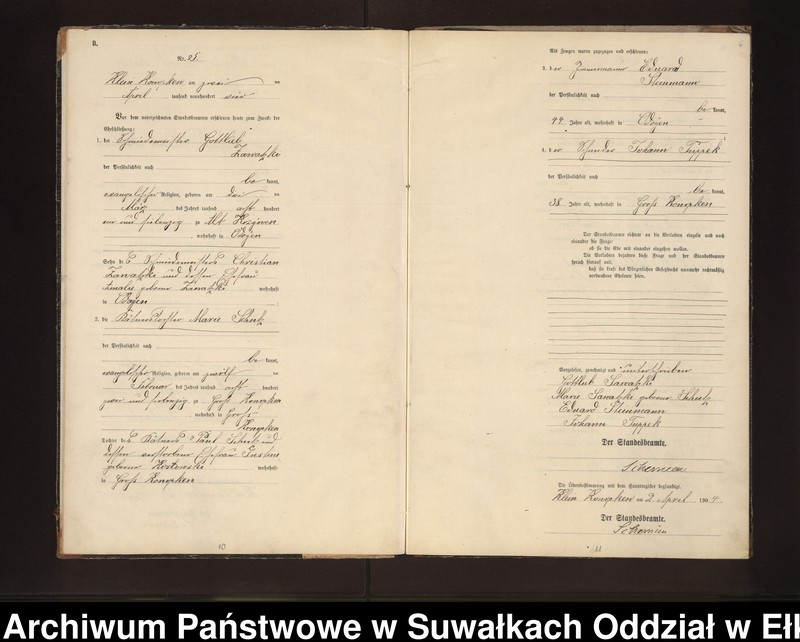 B.
Nr. 25.
Klein Konopken am zwei ten
April tausend neunhundert vier
Vor dem unterzeichneten Standesbeamten erschienen heute zum Zweck der
Eheschließung:
1. der Schmiedemeister Gottlieb
Zawatzki
der Persönlichkeit nach
be kannt,
evangelischer Religion, geboren am drei ten
März des Jahres tausend acht hundert
ein und siebenzig zu Alt
, wohnhaft in Odojen
Sohn des Schmiedemeisters Christian
Zawatzki und dessen Ehefrau
Amalie geborene Zawatzki wohnhaft
in Odojen
2. die Kätnerstochter Marie Schulz
der Persönlichkeit nach
be kannt,
evangelischer Religion, geboren am zwölf ten
Februar des Jahres tausend acht hundert
zwei und siebenzig zu Groß Konopken
, wohnhaft in Groß
Konopken
Tochter des Kätners Paul Schulz und
dessen verstorbene Ehefrau Justine
geborene wohnhaft
in Groß Konopken
10
Als Zeugen waren zugezogen und erschienen:
3. der Zimmermann Eduard
Steinmann
der Persönlichkeit nach
be kannt,
44 Jahre alt, wohnhaft in Odojen
4. der Johann Typpek
der Persönlichkeit nach
be kannt,
38 Jahre alt, wohnhaft in Groß Konopken
Der Standesbeamte richtete an die Verlobten einzeln und nach
einander die Frage:
ob sie die Ehe mit einander eingehen wollen.
Die Verlobten bejahten diese Frage und der Standesbeamte
sprach hierauf aus,
daß sie kraft des Bürgerlichen Gesetzbuchs nunmehr rechtmäßig
verbundene Eheleute seien.
Vorgelesen, genehmigt und unterschrieben
Gottlieb Sawatzki
Marie Sawatzki geborene Schulz
Eduard Steinmann
Johann Typpek
Der Standesbeamte.
Die Übereinstimmung mit dem Hauptregister beglaubigt.
Klein Konopken am 2. April 1904.
Der Standesbeamte.
Archiwum Państwowe w Suwałkach Oddział w Eł